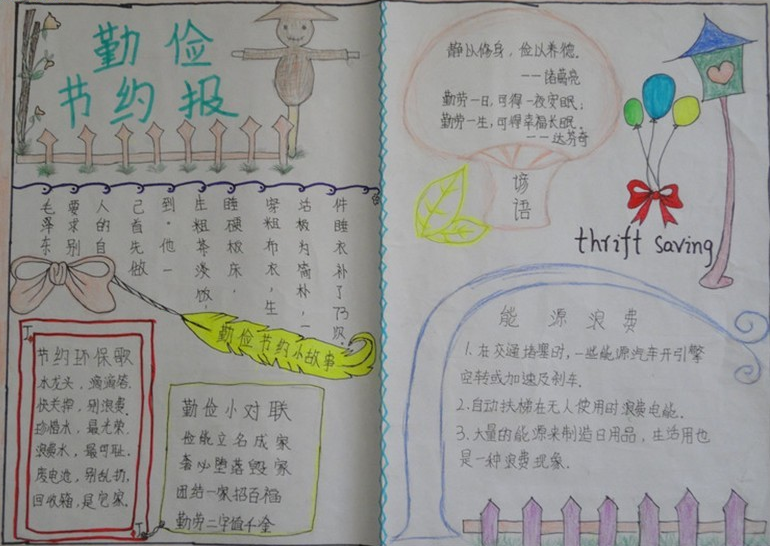 勤俭
节约报
毛泽东
要求别
人的自
己首先做
到·他一
生粗茶淡饭,
睡硬板床,
穿粗布衣,生
活极为简朴,一
件睡衣补了73次.
勤俭节约小故事
节约环保歌
水龙头,滴滴答.
快关掉,别浪费.
珍惜水,最光荣.
浪费水,最可耻.
废电池,别乱扔,
回收箱,是它家.
勤俭小对联
俭能立名成家
奢必堕落毁家
团结一家招百福
勤劳二字值千金
静以修身,俭以养德.
——诸葛亮
勤劳一日,可得一夜安眠;
勤劳一生,可得幸福长眠.
——达芬奇
谚语
thrift saving
能源浪费
1.在交通堵塞时,一些能源汽车开引擎
空转或加速及刹车.
2.自动扶梯在无人使用时浪费电能.
3.大量的能源来制造日用品,生活用也
是一种浪费现象.